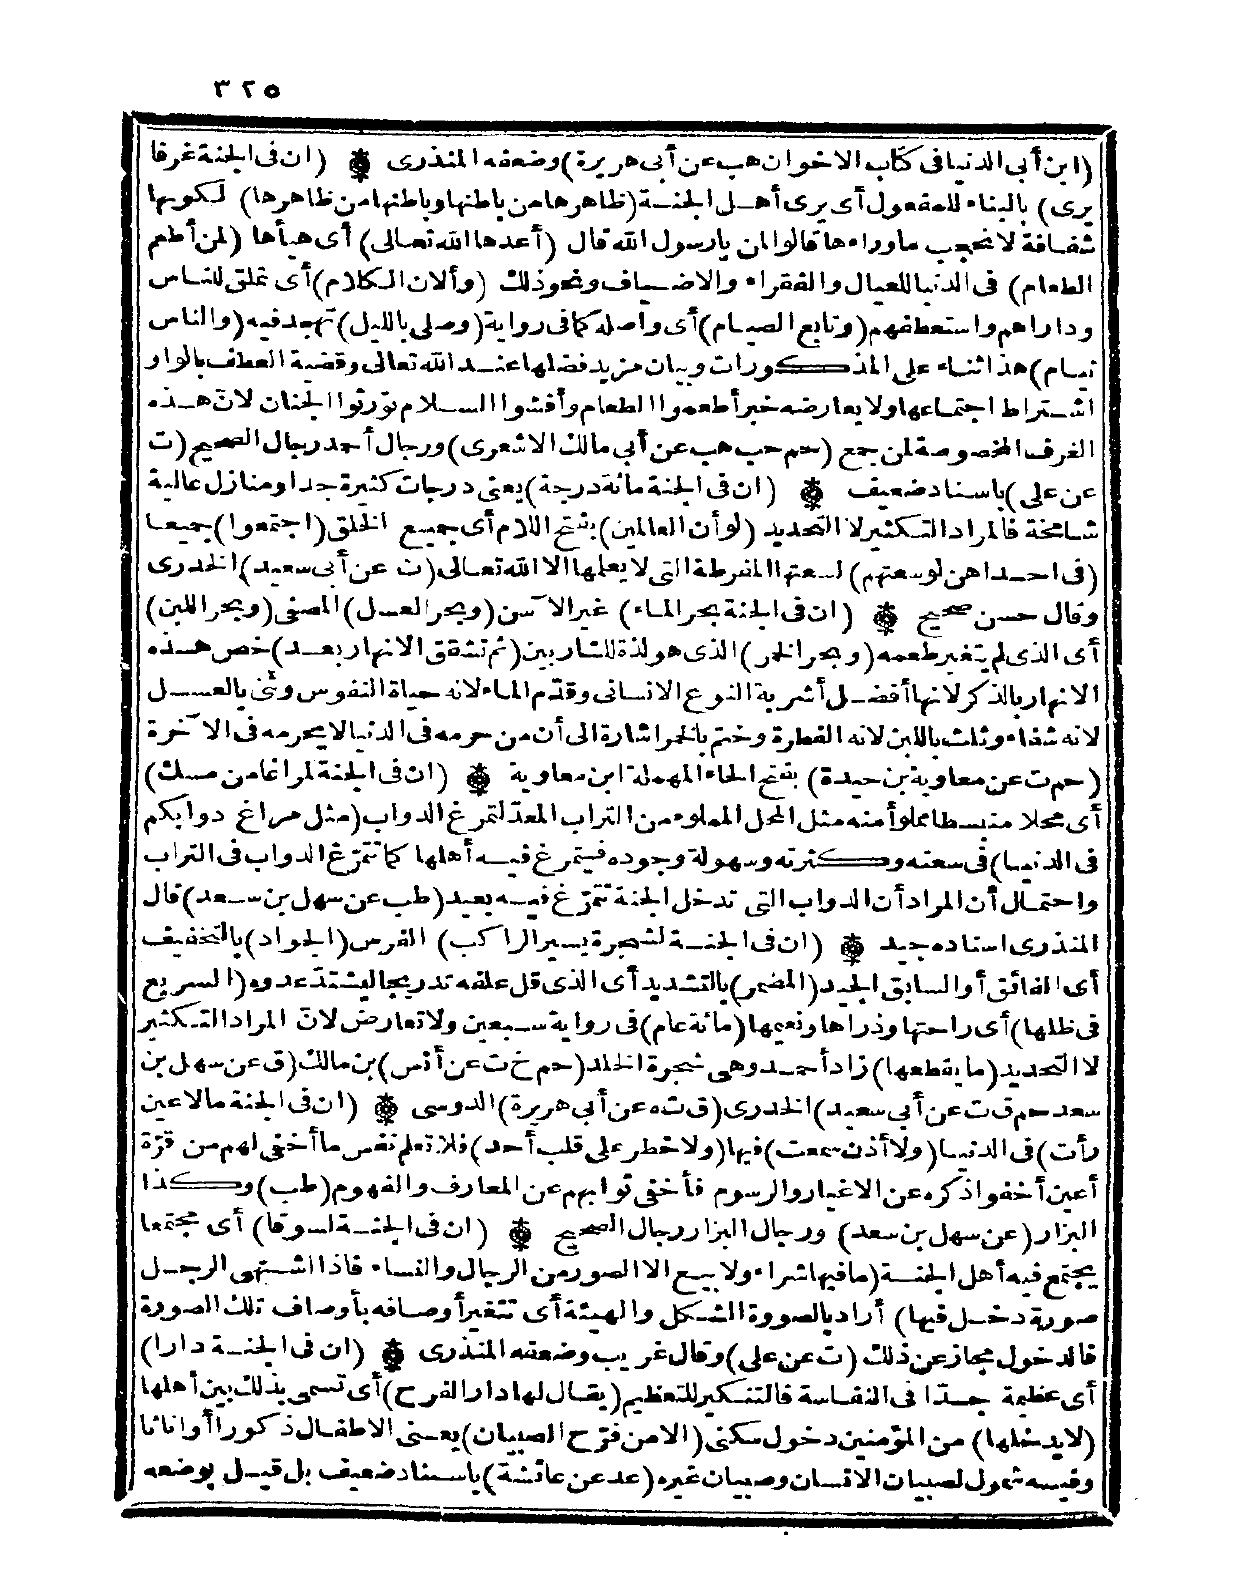 ٣٢٥
(ابن أبى الدنيا فى كتاب الاخوان هب عن أبى هريرة) وضعفه المنذرى ۞ (ان فى الجنة غرفا
يرى) بالبناء للمفعول أى يرى أهـل الجنـة (ظاهرها من باطنها وباطنها من ظاهرها) لكونها
شفافة لا تحجب ما وراءها قالوا لمن يا رسول الله قال (أعدها الله تعالى) أى هيأها (لمن أطعم
الطعام) فى الدنيا للعيال والفقراء والاضـياف ونحو ذلك (وألان الـكلام) أى تملق للنـاس
وداراهم واستعطفهم (وتابع الصيـام) أى واصله كما فى رواية (وصلى بالليل) تهجد فيه (والناس
نيـام) هذا ثنـاء على المذكورات وبيان مزيد فضلها عنـد الله تعالى وقضية العطف بالواو
اشـتراط اجتماعها ولا يعارضه خبر أطعموا الطعام وأفشوا السـلام تورثوا الجنان لان هـذه
الغرف المخصوصة لمن جمع (حم حب هب عن أبى مالك الاشعرى) ورجال أحمد رجال الصحيح (ت
عن على) باسناد ضعيف ۞ (ان فى الجنة مائة درجة) يعنى درجات كثيرة جدا ومنازل عالية
شامخة فالمراد التكثير لا التحديد (لو أن العالمين) بفتح اللام أى جميـع الخلق (اجتمعوا) جميعـا
(فى احـداهن لوسعتهم) لسعتها المفرطة التى لا يعلمها الا الله تعالى (ت عن أبى سعيد) الخدرى
وقال حسن صحيح ۞ (ان فى الجنة بحر الماء) غير الآسن (وبحر العسل) المصفى (وبحر اللبن)
أى الذى لم يتغير طعمه (وبحر الخمر) الذى هو لذة للشاربين (ثم تشقق الانهار بعـد) خص هـذه
الانهار بالذكر لانها أفضـل أشربة النوع الانسانى وقدّم الماء لانه حياة النفوس وثنى بالعسـل
لانه شفاء وثلث باللبن لانه الفطرة وختم بالخمر اشارة الى أن من حرمه فى الدنيا لا يحرمه فى الآخرة
(حم ت عن معاوية بن حيدة) بفتح الحاء المهملة ابن معاوية ۞ (ان فى الجنة لمراغا من مسك)
أى محلا منبسطا مملوأ منه مثل المحل المملوء من التراب المعدّ لتمرغ الدواب (مثل مراغ دوابكم
فى الدنيـا) فى سعته وكثرته وسهولة وجوده فيتمرغ فيـه أهلها كما تتمرّغ الدواب فى التراب
واحتمـال أن المراد أن الدواب التى تدخل الجنة تتمرّغ فيـه بعيد (طب عن سهل بن سـعد) قال
المنذرى اسناده جيد ۞ (ان فى الجنـة لشجرة يسير الراكب) الفرس (الجواد) بالتخفيف
أى الفائق أو السابق الجيد (المضمر) بالتشديد أى الذى قل علفه تدريجا ليشتدّ عدوه (السريع
فى ظلها) أى راحتها وذراها ونعيمها (مائة عام) فى رواية سـبعين ولا تعارض لانّ المراد التكثير
لا التحديد (ما يقطعها) زاد أحمـد وهى شجرة الخلد (حم خ ت عن أنس) بن مالك (ق عن سهل بن
سعد حم ق ت عن أبى سعيد) الخدرى (ق ت ه عن أبى هريرة) الدوسى ۞ (ان فى الجنة ما لا عين
رأت) فى الدنيـا (ولا أذن سمعت) فيها (ولا خطر على قلب أحد) فلا تعلم نفس ما أخفى لهم من قرّة
أعين أخفوا ذكره عن الاغيار والرسوم فأخفى ثوابهم عن المعارف والفهوم (طب) وكذا
البزار (عن سهل بن سعد) ورجال البزار رجال الصحيح ۞ (ان فى الجنـة لسوقا) أى مجتمعا
يجتمع فيه أهل الجنـة (ما فيها شراء ولا بيع الا الصور من الرجال والنساء فاذا اشتهى الرجـل
صورة دخـل فيها) أراد بالصورة الشـكل والهيئة أى تتغير أوصافه بأوصاف تلك الصورة
فالدخول مجاز عن ذلك (ت عن على) وقال غريب وضعفه المنذرى ۞ (ان فى الجنـة دارا)
أى عظيمة جـدّا فى النفاسة فالتنـكير للتعظيم (يقال لها دار الفرح) أى تسمى بذلك بين أهلها
(لا يدخلها) من المؤمنين دخول سكنى (الا من فرّح الصبيان) يعـنى الاطفـال ذكورا أو اناثا
وفيـه شمول لصبيان الانسان وصبيان غيره (عد عن عائشة) باسنـاد ضعيف بل قيـل بوضعه